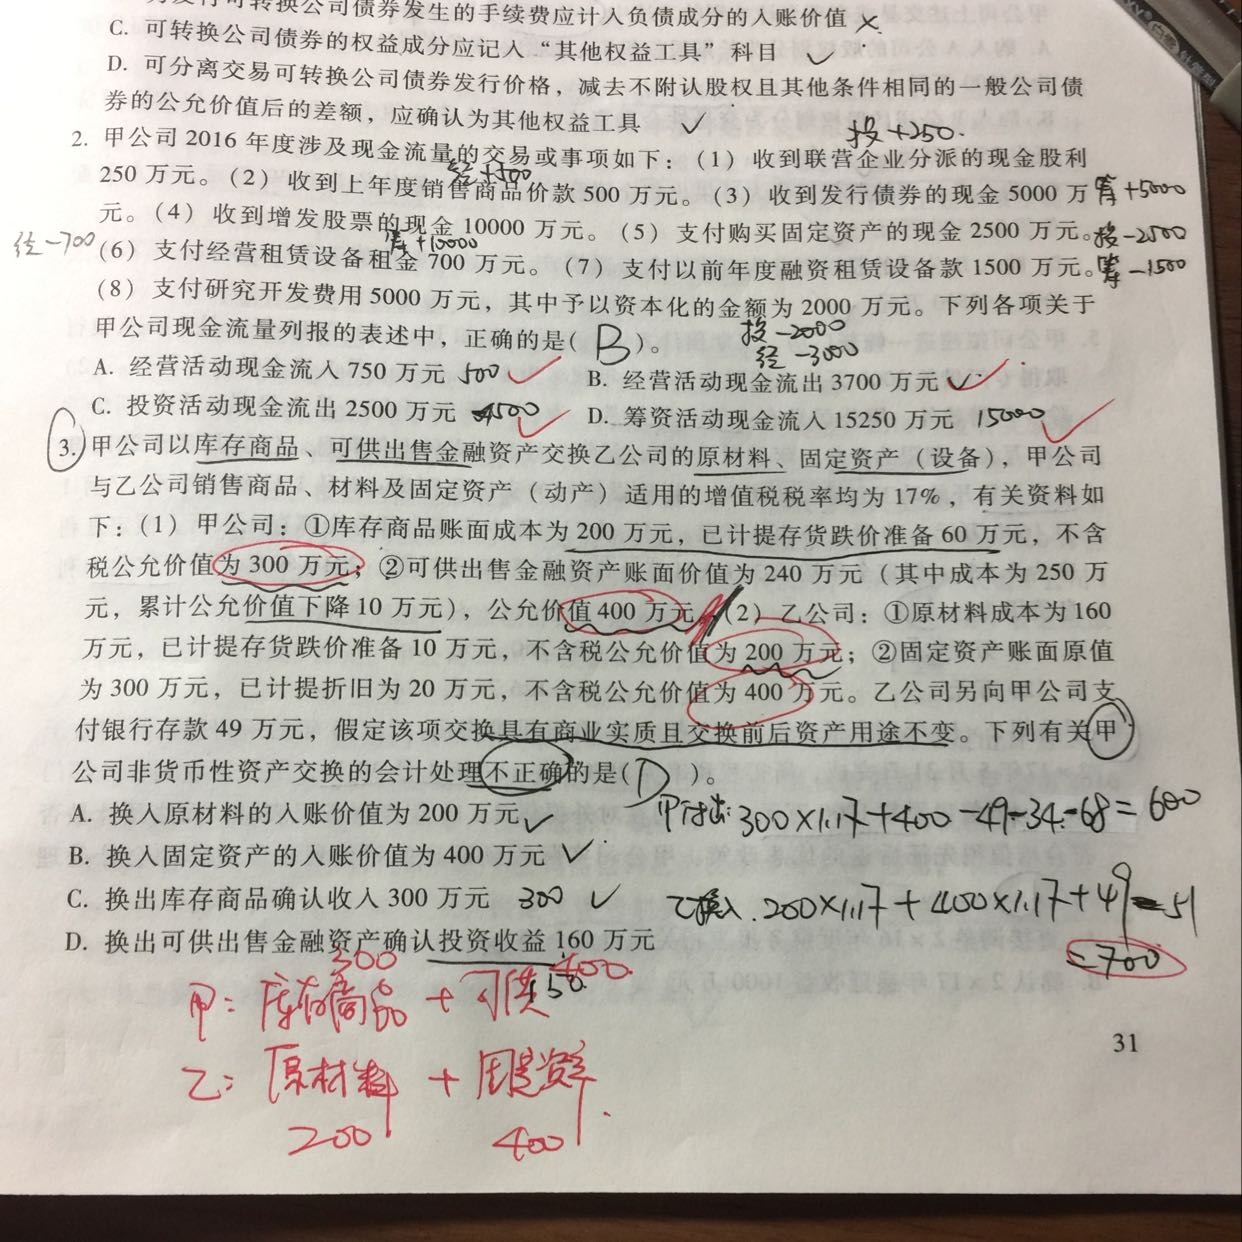 为发行可转换公司债券发生的手续费应计入负债成分的入账价值 ×
C. 可转换公司债券的权益成分应记入“其他权益工具”科目 ✓
D. 可分离交易可转换公司债券发行价格，减去不附认股权且其他条件相同的一般公司债
券的公允价值后的差额，应确认为其他权益工具 ✓
投+250.
2. 甲公司 2016 年度涉及现金流量的交易或事项如下：（1）收到联营企业分派的现金股利
经+500
250 万元。（2）收到上年度销售商品价款 500 万元。（3）收到发行债券的现金 5000 万 筹+5000
元。（4）收到增发股票的现金 10000 万元。（5）支付购买固定资产的现金 2500 万元。投-2500
经-700 筹+10000
（6）支付经营租赁设备租金 700 万元。（7）支付以前年度融资租赁设备款 1500 万元。筹-1500
（8）支付研究开发费用 5000 万元，其中予以资本化的金额为 2000 万元。下列各项关于
甲公司现金流量列报的表述中，正确的是( B )。
投-2000
经-3000
A. 经营活动现金流入 750 万元 500 ✓ B. 经营活动现金流出 3700 万元 ✓
C. 投资活动现金流出 2500 万元 4500 D. 筹资活动现金流入 15250 万元 15000
3. 甲公司以库存商品、可供出售金融资产交换乙公司的原材料、固定资产（设备），甲公司
与乙公司销售商品、材料及固定资产（动产）适用的增值税税率均为 17%，有关资料如
下：（1）甲公司：①库存商品账面成本为 200 万元，已计提存货跌价准备 60 万元，不含
税公允价值为 300 万元；②可供出售金融资产账面价值为 240 万元（其中成本为 250 万
元，累计公允价值下降 10 万元），公允价值 400 万元。（2）乙公司：①原材料成本为 160
万元，已计提存货跌价准备 10 万元，不含税公允价值为 200 万元；②固定资产账面原值
为 300 万元，已计提折旧为 20 万元，不含税公允价值为 400 万元。乙公司另向甲公司支
付银行存款 49 万元，假定该项交换具有商业实质且交换前后资产用途不变。下列有关甲
公司非货币性资产交换的会计处理不正确的是( D )。
A. 换入原材料的入账价值为 200 万元 ✓
甲付出: 300×1.17+400-49-34-68=600
B. 换入固定资产的入账价值为 400 万元 ✓
C. 换出库存商品确认收入 300 万元 300 ✓
乙换入. 200×1.17+400×1.17+49-51
=700
D. 换出可供出售金融资产确认投资收益 160 万元
150.
300 400.
甲: 库存商品 + 可供
乙: 原材料 + 固定资产.
200 400
31